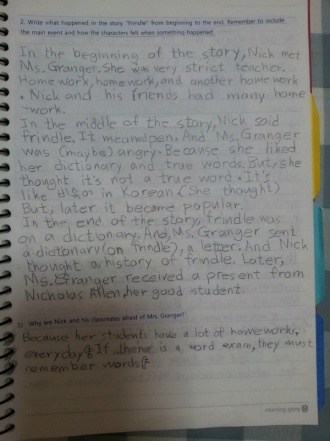 2. Write what happened in the story "Frindle" from beginning to the end. Remember to include
the main event and how the characters felt when something happened.
In the beginning of the story, Nick met
Ms. Granger. She was very strict teacher.
Homework, homework, and another homework
. Nick and his friends had many home
work.
In the middle of the story, Nick said
frindle. It means pen. And Ms. Granger
was (maybe) angry. Because she liked
her dictionary and true words. But, she
thought it's not a true word. It's
like in Korean. (She thought)
But, later it became popular.
In the end of the story, frindle was
on a dictionary. And, Ms. Granger sent
a dictionary (on frindle), a letter. And Nick
thought a history of frindle. Later,
Ms. Granger received a present from
Nicholas Allen, her good student.
1) Why are Nick and his classmates afraid of Mrs. Granger?
Because her students have a lot of homeworks,
everyday If there is a word exam, they must
remember words